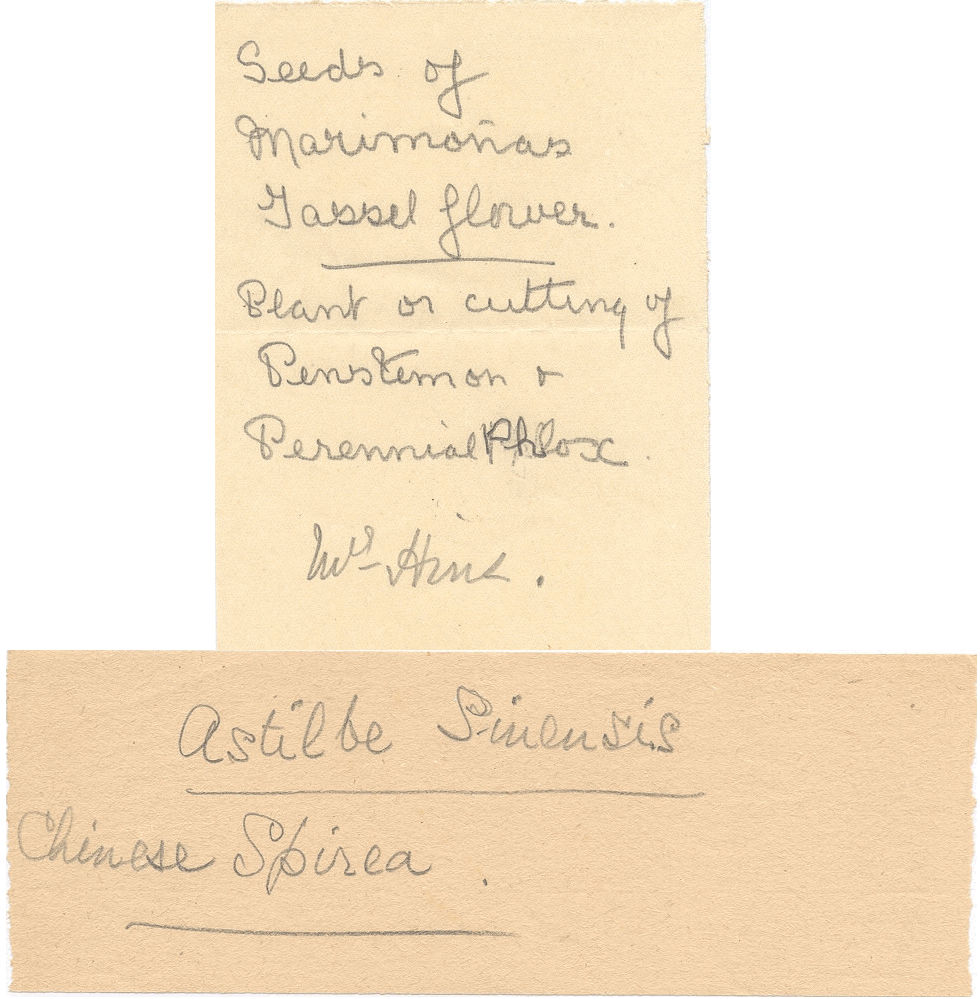 Seeds of
Marimoñas
Tassel flower.
Plant or cutting of
Penstemon &
Perennial Phlox.
Mrs
Astilbe Sinensis
Chinese Spirea.